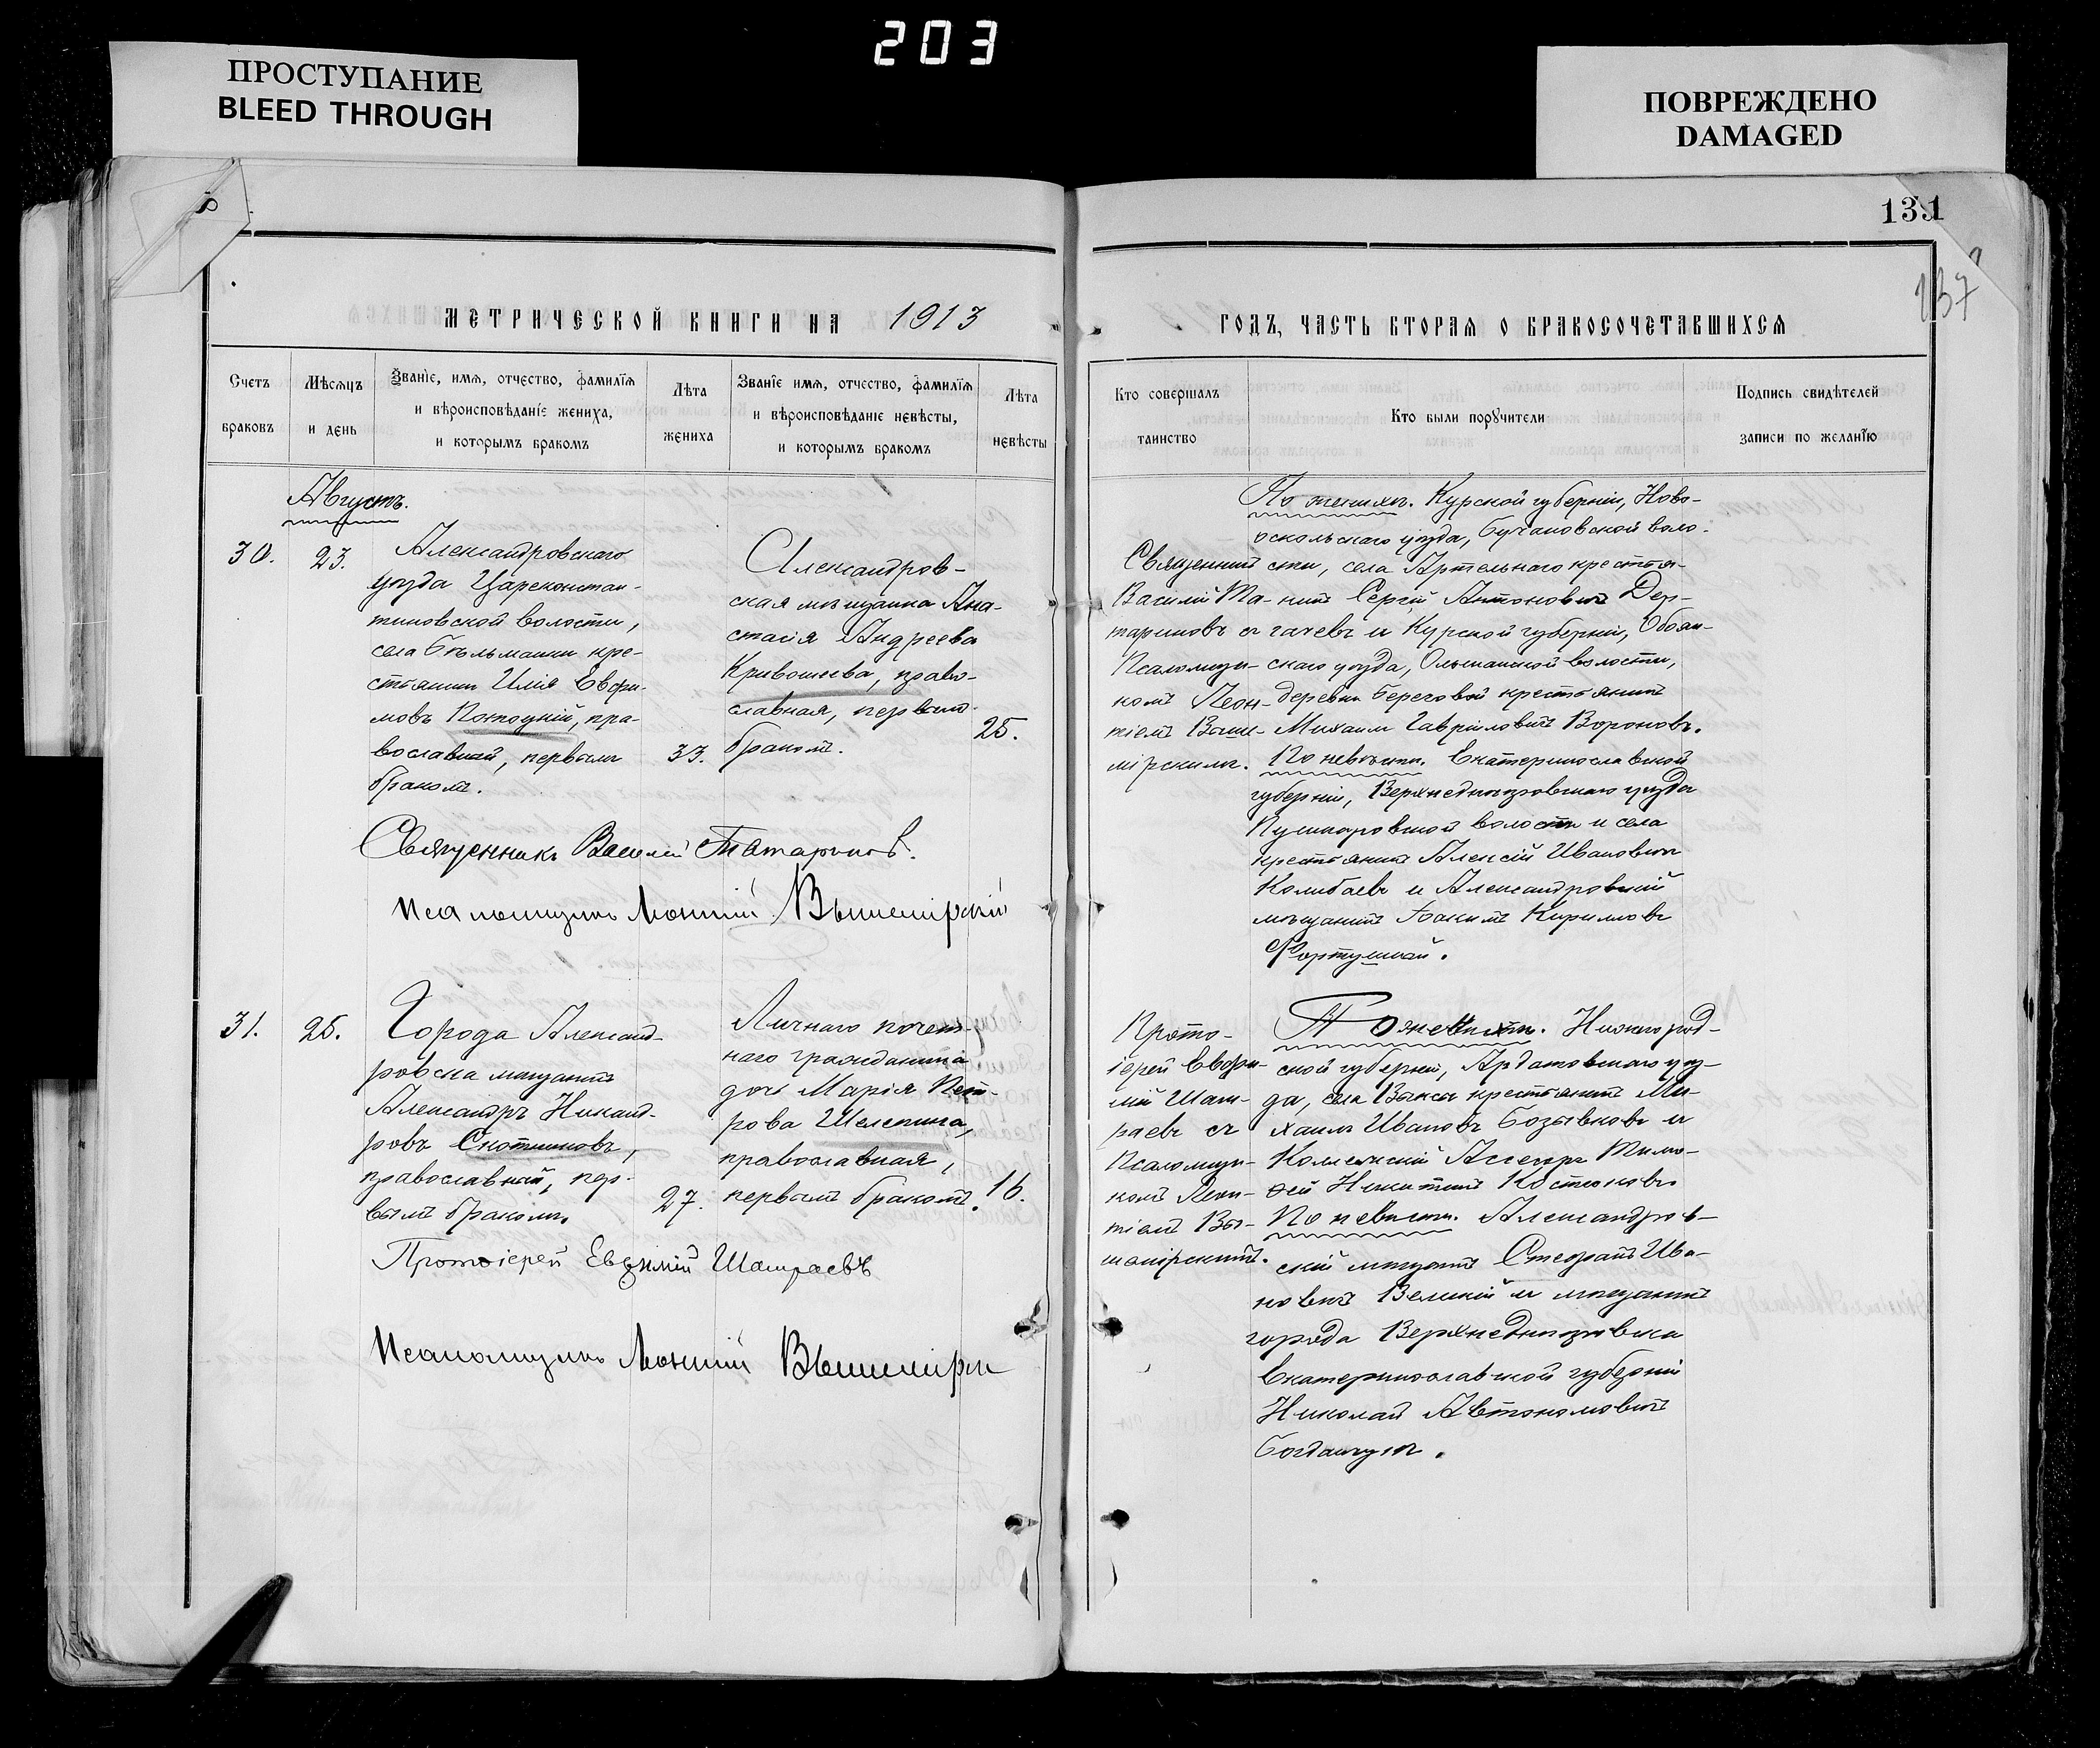 203
ПРОСТУПАНИЕ
BLEED THROUGH
ПОВРЕЖДЕНО
DAMAGED
131
137
МЕТРИЧЕСКОЙ КНИГИ НА 1913
ГОДЪ, ЧАСТЬ ВТОРАЯ О БРАКОСОЧЕТАВШИХСЯ
Счетъ
браковъ
Мѣсяцъ
и день
Званіе, имя, отчество, фамилія
и вѣроисповѣданіе жениха,
и которымъ бракомъ
Лѣта
жениха
Званіе имя, отчество, фамилія
и вѣроисповѣданіе невѣсты,
и которымъ бракомъ
Лѣта
невѣсты
Кто совершалъ
таинство
Кто были поручители
Подпись свидѣтелей
записи по желанію
Августъ.
30.
23.
Александровскаго
уѣзда Цареконстан-
тиновской волости,
села Бѣльманки кре-
стьянинъ Илія Евфи-
мовъ Потоцкій, пра-
вославный, первымъ
бракомъ.
33.
Александров-
ская мѣщанка Ана-
стасія Андреева
Кривошеева, право-
славная, первымъ
бракомъ.
25.
Священникъ Василій Татариновъ.
Псаломщикъ Леонтій Вышемірскій
Священникъ
Василій Та-
тариновъ съ
Псаломщи-
комъ Леон-
тіемъ Выше-
мірскимъ.
По женихѣ. Курской губерніи, Ново-
оскольскаго уѣзда, воло-
сти, села Артельнаго крестья-
нинъ Сергѣй Антоновичъ Дер-
гачевъ и Курской губерніи, Обоян-
скаго уѣзда, Ольшанской волости,
деревни Береговой крестьянинъ
Михаилъ Гавріиловичъ Вороновъ.
По невѣстѣ. Екатеринославской
губерніи, Верхнеднѣпровскаго уѣзда
Пушкаровской волости и села
крестьянинъ Алексій Ивановичъ
Колибаевъ и Александровскій
мѣщанинъ Іоакимъ Кирилловъ
31.
25.
Города Александ-
ровска мѣщанинъ
Александръ Никанд-
ровъ Скотниковъ,
православный, пер-
вымъ бракомъ.
27.
Личнаго почет-
наго гражданина
дочь Марія Пет-
рова Шелепина,
православная,
первымъ бракомъ.
16.
Протоіерей Евфимій Шамраевъ
Псаломщикъ Леонтій Вышемірск
Прото-
іерей Евфи-
мій Шам-
раевъ съ
Псаломщи-
комъ Леон-
тіемъ Вы-
шемірскимъ.
По женихѣ. Нижегород-
ской губерніи, Ардатовскаго уѣз-
да, села Выксы крестьянинъ Ми-
хаилъ Ивановъ Бозывковъ и
Коллежскій Ассесоръ Тимо-
фей Никитинъ Костюковъ
По невѣстѣ. Александров-
скій мѣщанинъ Стефанъ Ива-
новичъ Великій и мѣщанинъ
города Верхнеднѣпровска
Екатеринославской губерніи
Николай Автономовичъ